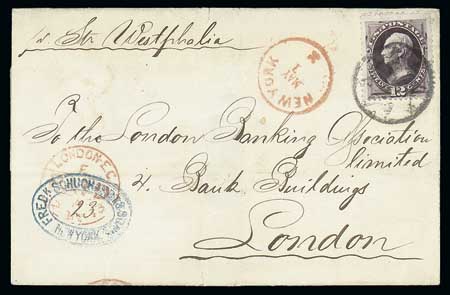 pr Str Westphalia
NEW YORK
MAY
12
CENTS
To the London Banking Association
limited
LONDON·E.C
4. Bank Buildings
FREDK SCHUCHARDT & SONS
23.
NEW YORK
London